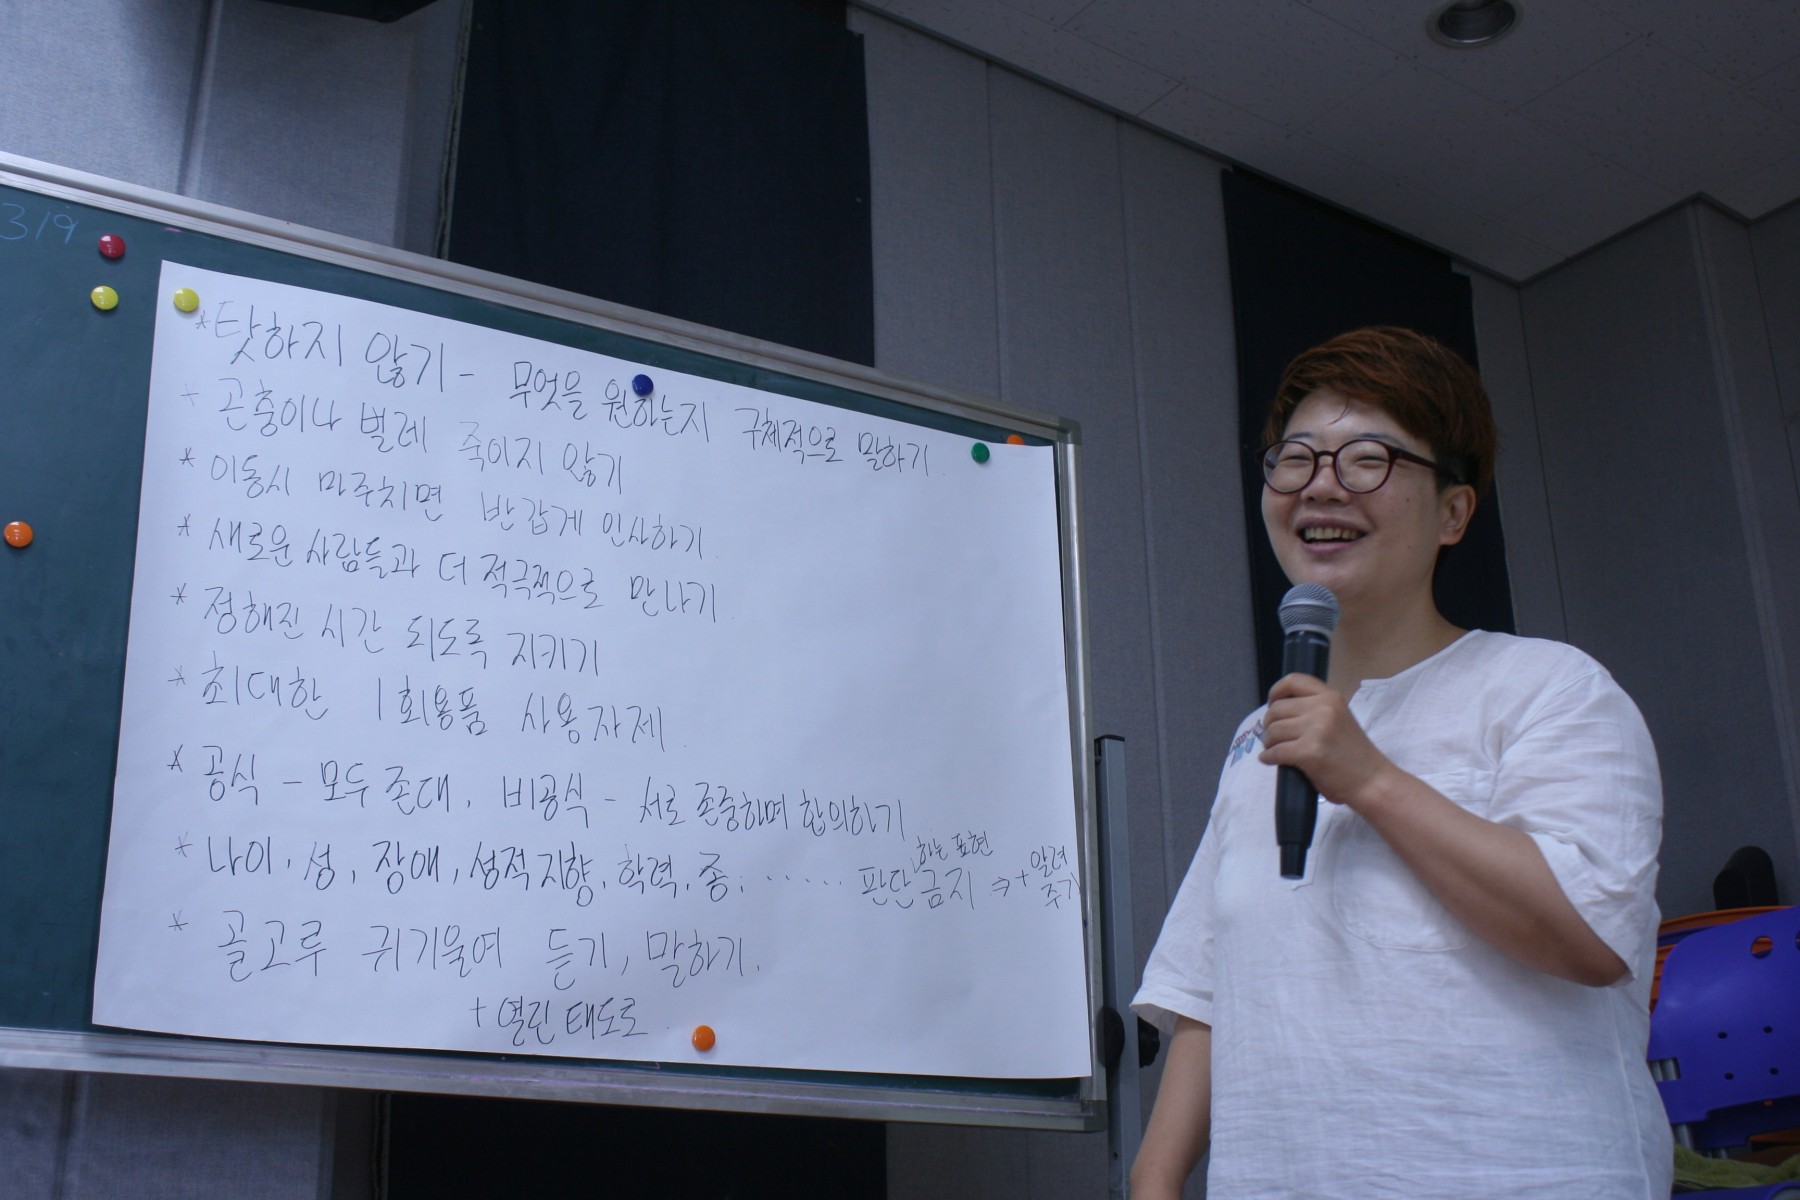 319
*탓하지 않기 - 무엇을 원하는지 구체적으로 말하기.
* 곤충이나 벌레 죽이지 않기
* 이동시 마주치면 반갑게 인사하기.
* 새로운 사람들과 더 적극적으로 만나기.
* 정해진 시간 되도록 지키기
* 최대한 1회용품 사용자제.
* 공식 - 모두 존대, 비공식 - 서로 존중하며 합의하기
* 나이, 성, 장애, 성적지향, 학력, 종, ...... 판단하는 표현 금지 → + 알려주기
* 골고루 귀기울여 듣기, 말하기.
+ 열린 태도로.